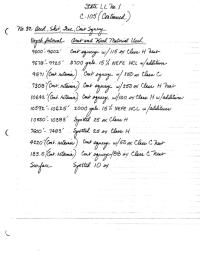 State LL No. 1
C-105 (Continued)
No. 32. Acid, Shot, Frac, Cmt Squeeze
Depth Interval Amount and Kind Material Used
9600'-9602' Cmt squeeze w/115 sx Class H Neat
9678'-9725' 2700 gals. 15% NEFE HCL w/additives
9671 (Cmt retainer) Cmt squeeze w/150 sx Class C
7308 (Cmt retainer) Cmt squeeze w/253 sx Class H Neat
10642 (Cmt retainer) Cmt squeeze w/100 sx Class H w/additives
10592'-10625' 2000 gals 15% NEFE HCL w/additives
10550'-10385' Spotted 25 sx Class H
7600'-7483' Spotted 25 sx Class H
4220 (Cmt retainer) Cmt squeeze w/60 sx Class C Neat
1535 (Cmt retainer) Cmt squeeze w/88 sx Class C Neat
Surface Spotted 10 sx